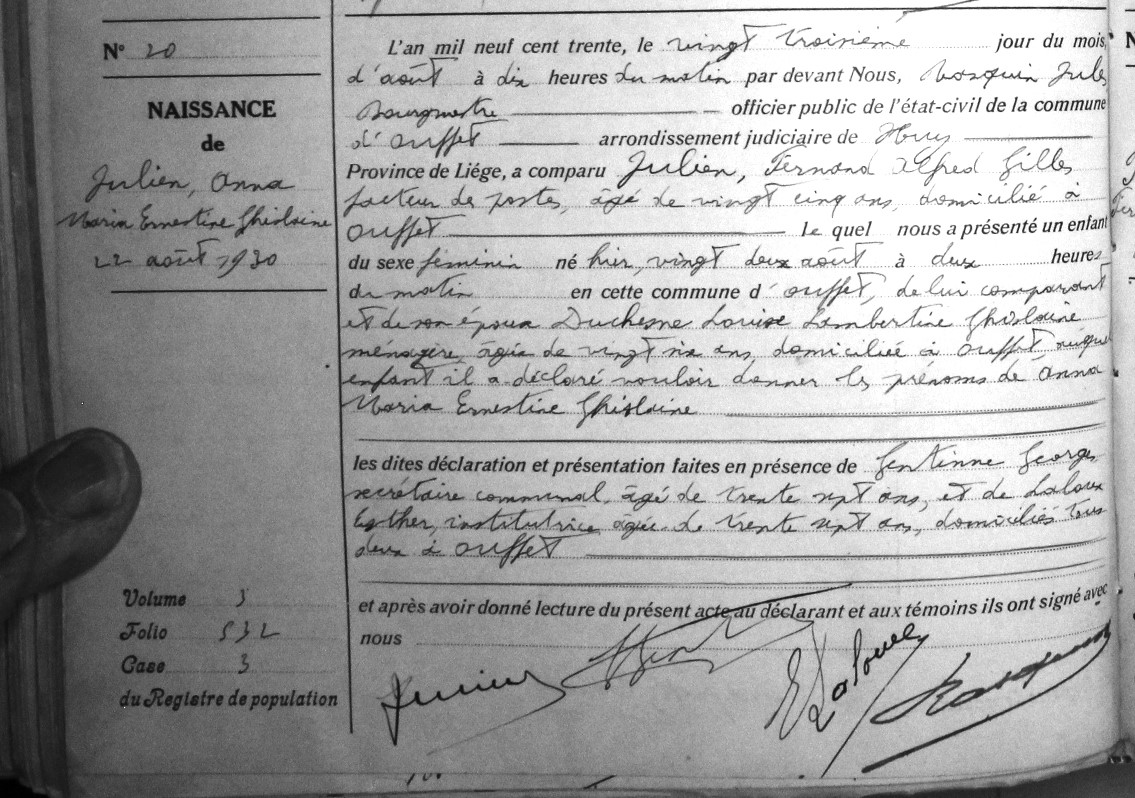 N° 20
NAISSANCE
de
Julien, Anna
Maria Ernestine Ghislaine
22 août 1930
Volume 3
Folio 532
Case 3
du Registre de population
L'an mil neuf cent trente, le vingt troisième jour du mois,
d'août à dix heures du matin par devant Nous, Jules
Bourgmestre officier public de l'état-civil de la commune
d'Ouffet arrondissement judiciaire de Huy
Province de Liége, a comparu Julien, Fernand Alfred Gilles
facteur des postes, âgé de vingt cinq ans, domicilié à
Ouffet le quel nous a présenté un enfant
du sexe féminin né hier, vingt deux août à deux heures
du matin en cette commune d'Ouffet, de lui comparant
et de son épouse Duchesne Louise Lambertine Ghislaine
ménagère, âgée de vingt six ans, domiciliée à Ouffet auquel
enfant il a déclaré vouloir donner les prénoms de Anna
Maria Ernestine Ghislaine
les dites déclaration et présentation faites en présence de Gentinne Georges
secrétaire communal, âgé de trente sept ans, et de Laloux
Esther, institutrice âgée de trente sept ans, domiciliés tous
deux à Ouffet
et après avoir donné lecture du présent acte au déclarant et aux témoins ils ont signé avec
nous